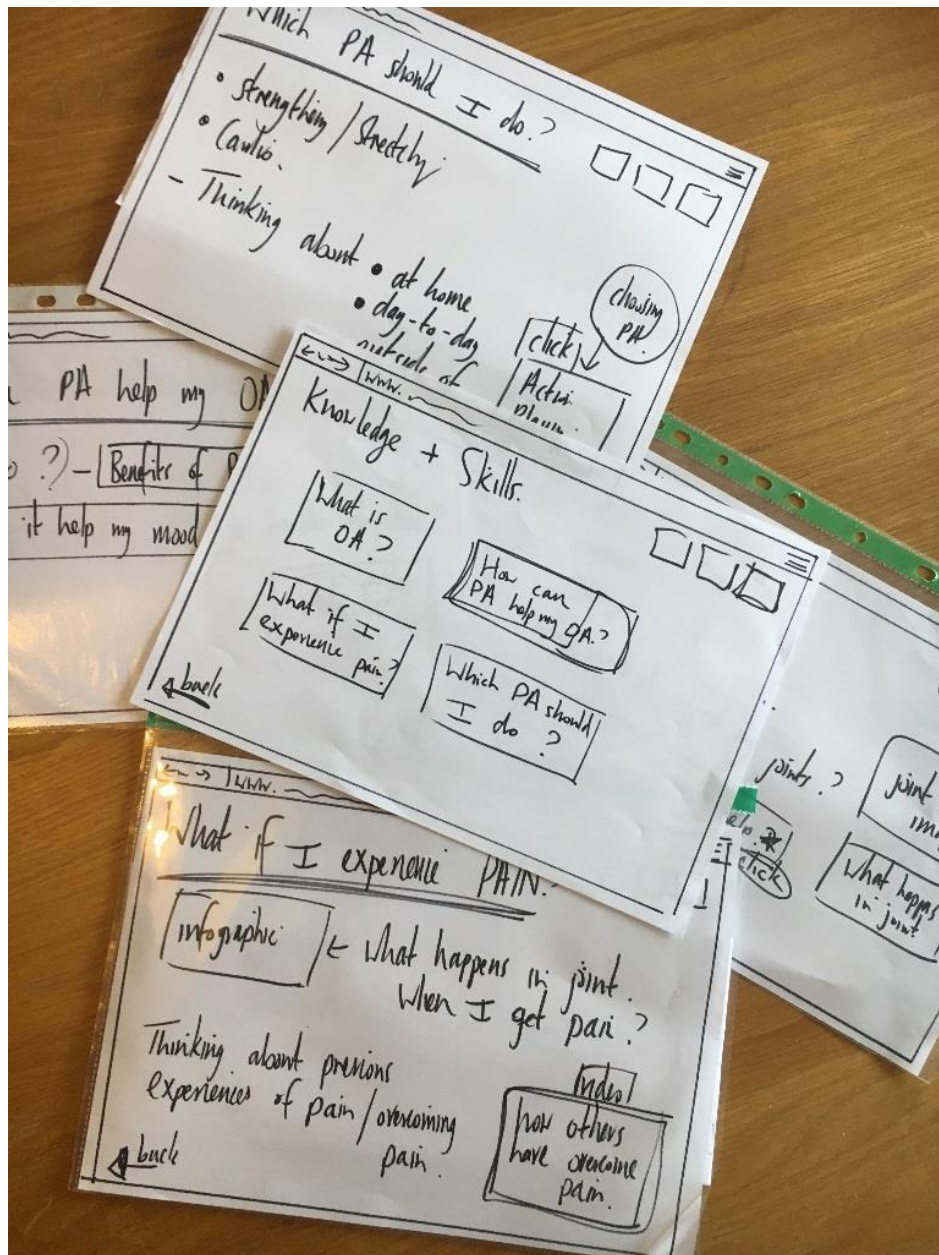 Which PA should I do?
• Strengthening / Stretching.
• Cardio.
- Thinking about • at home
• day-to-day
outside of
choosing
PA.
click
PA help my OA
?) - Benefits of
it help my mood
www.
Knowledge + Skills.
What is
OA?
How can
PA help my OA?
What if I
experience pain?
Which PA should
I do ?
back
joints ?
joint
click
What happens
in joint
www.
What if I experience PAIN.
infographic ← What happens in joint.
When I get pain ?
Thinking about previous
experiences of pain / overcoming
pain.
how others
have overcome
pain.
back